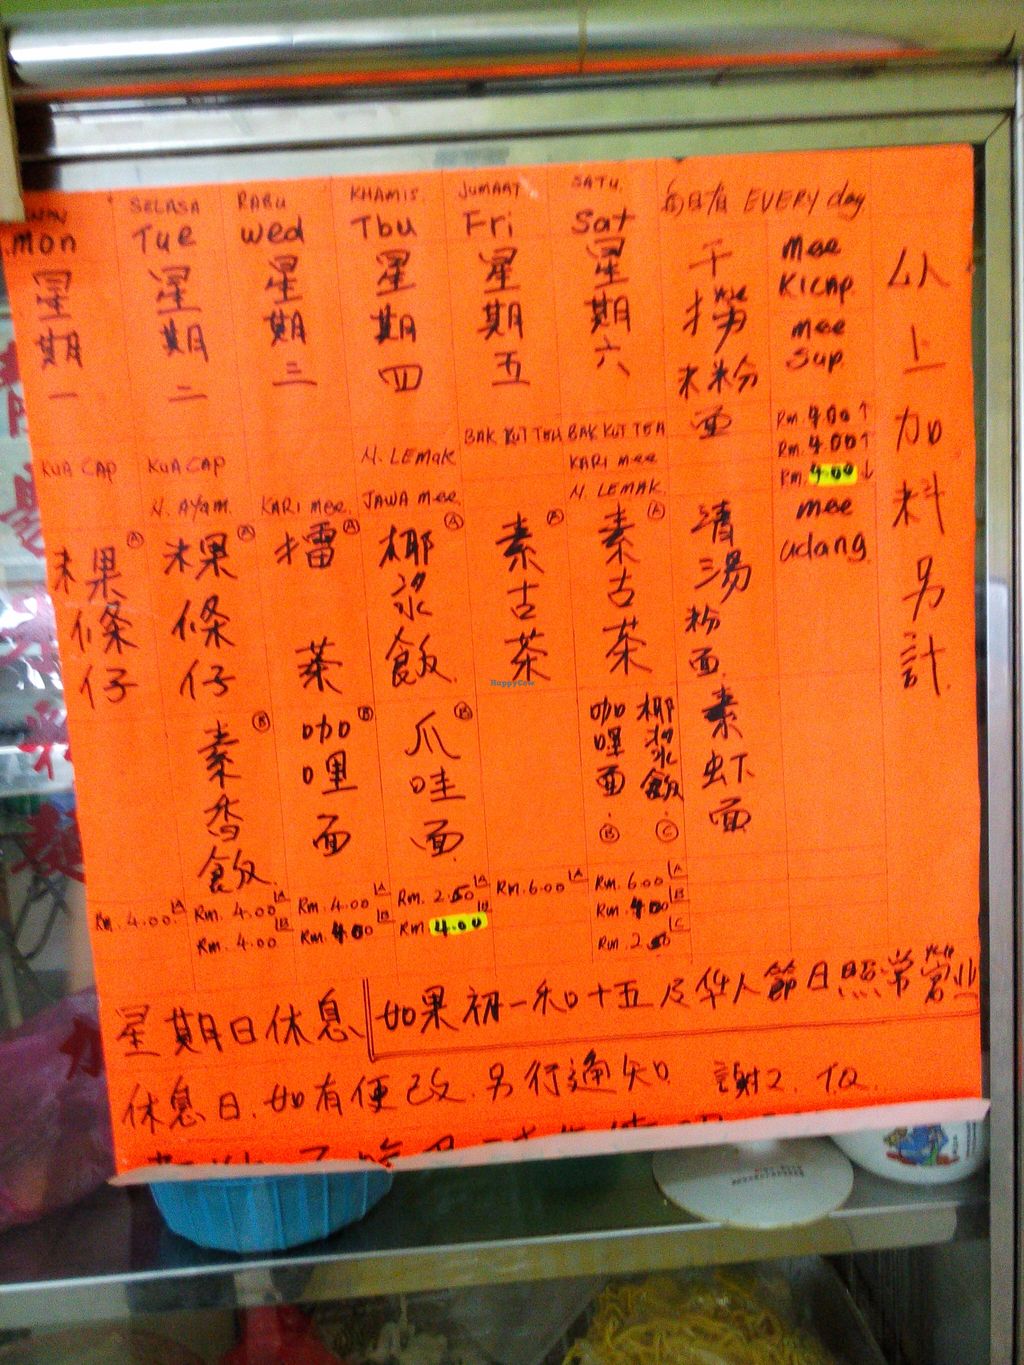 Mon
星期一
KUA CAP
粿條仔 Ⓐ
Rm. 4.00 A
SELASA
Tue
星期二
KUA CAP
N. AYam.
粿條仔 Ⓐ
素香飯 Ⓑ
Rm. 4.00 A
Rm. 4.00 B
RABU
Wed
星期三
KARI mee.
擂茶 Ⓐ
咖哩面 Ⓑ
Rm. 4.00 A
Rm. 4.00 B
KHAMIS.
Thu
星期四
N. LEMAK
JAWA mee
椰浆飯 Ⓐ
爪哇面 Ⓑ
Rm. 2.50 A
Rm 4.00 B
JUMAAT
Fri
星期五
BAK KUT TEH
素古茶 Ⓐ
Rm. 6.00 A
SATU.
Sat
星期六
BAK KUT TEH
KARI mee
N. LEMAK.
素古茶 Ⓐ
咖哩面 Ⓑ
椰浆飯 Ⓒ
Rm. 6.00 A
Rm. 4.00 B
Rm. 2.50 C
每日有 EVERY day
干捞粿粉面
清湯粉面
素虾面
mee
KICAP.
mee
Sup.
Rm. 4.00 ↑
Rm. 4.00 ↑
Rm. 4.00 ↓
mee
udang
以上加料另計
星期日休息
如果初一和十五及华人節日照常营业
休息日.如有便改.另行通知
HappyCow